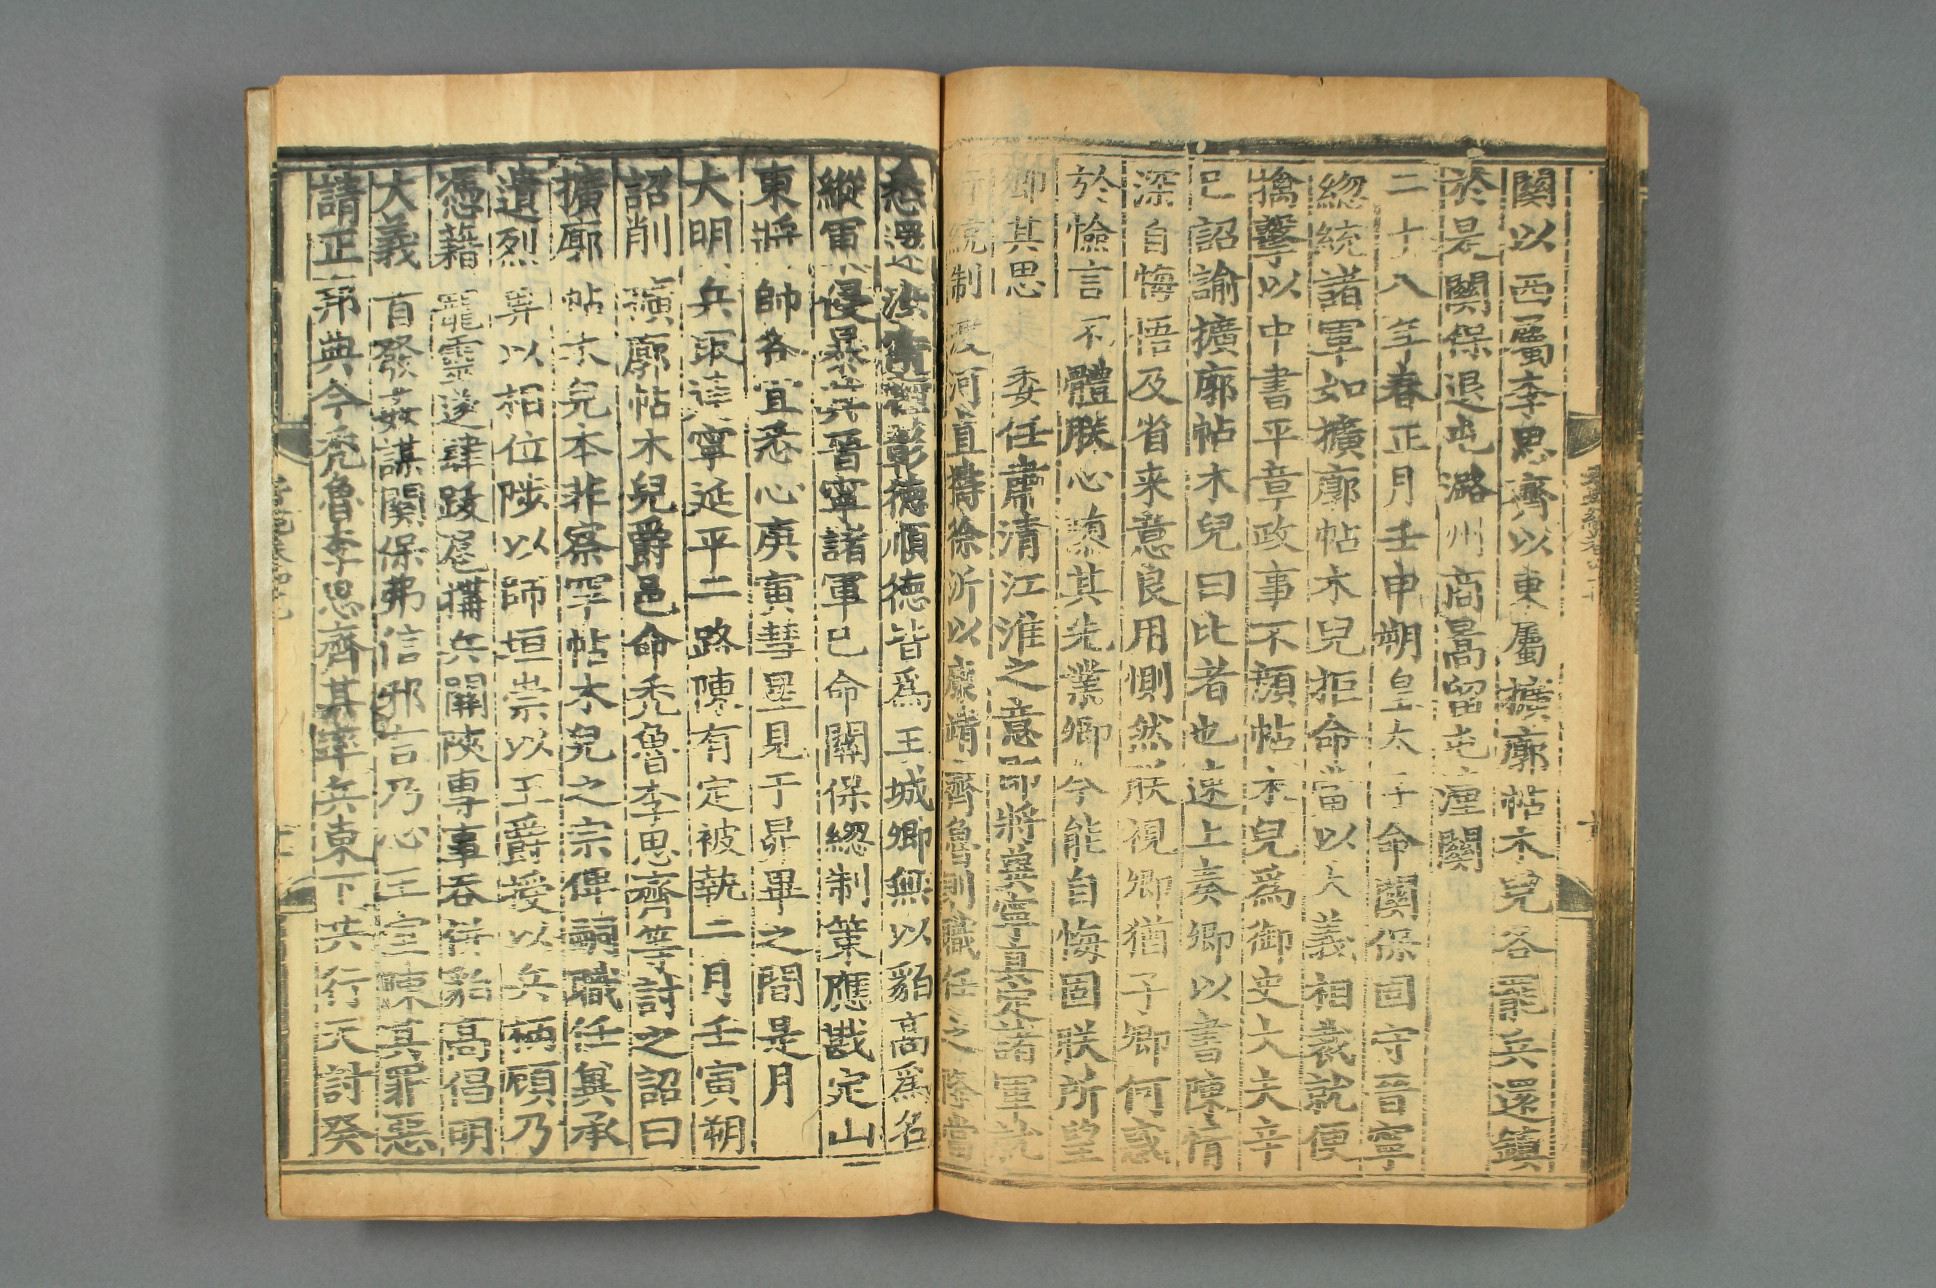 關以西屬李思齊以東屬擴廓帖木兒各罷兵還鎮
於是關保退屯潞州商暠留屯潼關
二十八年春正月壬申朔皇太子命關保固守晉寧
緫統諸軍如擴廓帖木兒拒命當以大義相裁就便
擒擊以中書平章政事不顏帖木兒爲御史大夫辛
巳詔諭擴廓帖木兒曰比者也速上奏卿以書陳情
深自悔悟及省来意良用惻然朕視卿猶子卿何惑
於憸言不體朕心隳其先業卿今能自悔固朕所望
卿其思 委任肅清江淮之意即將冀寧真定諸軍就
行統制渡河直擣徐沂以康靖齊魯則職任之隆當
悉還 彰德順德皆爲王城卿無以貊高爲名
縱軍 侵暴其晉寧諸軍已命關保緫制策應戡定山
東將帥各宜悉心庚寅彗星見于昴畢之間是月
大明兵取 寧延平二路陳有定被執二月壬寅朔
詔削擴廓帖木兒爵邑命禿魯李思齊等討之詔曰
擴廓帖木兒本非察罕帖木兒之宗俾嗣職任冀承
遺烈 以相位陟以師垣崇以王爵授以兵柄顧乃
憑藉寵靈遂肆跋扈搆兵關陝專事吞併貊高倡明
大義首發姦謀關保弗信邪言乃心王室陳其罪惡
請正邦典今禿魯李思齊其率兵東下共行天討癸